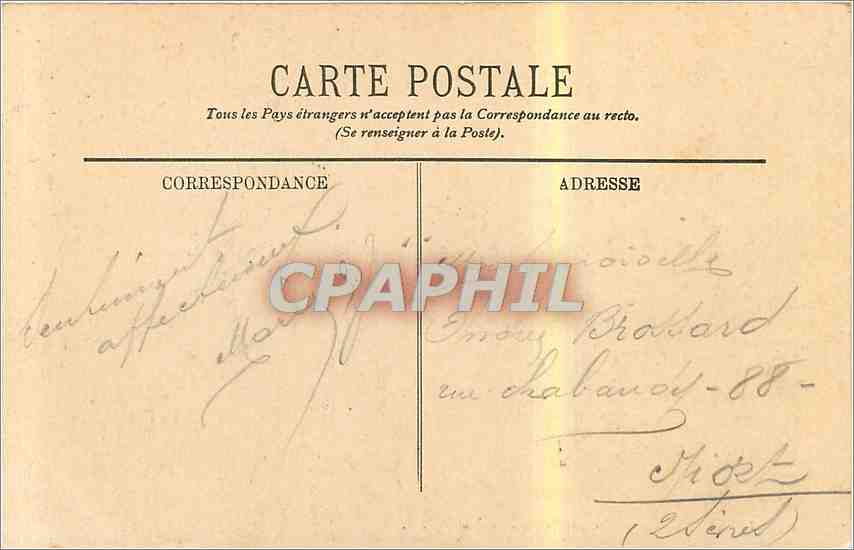 CARTE POSTALE
Tous les Pays étrangers n'acceptent pas la Correspondance au recto.
(Se renseigner à la Poste).
CORRESPONDANCE
ADRESSE
CPAPHIL
Mademoiselle
Brossard
rue Chabaudy - 88 -
Niort
(2 Sèvres)